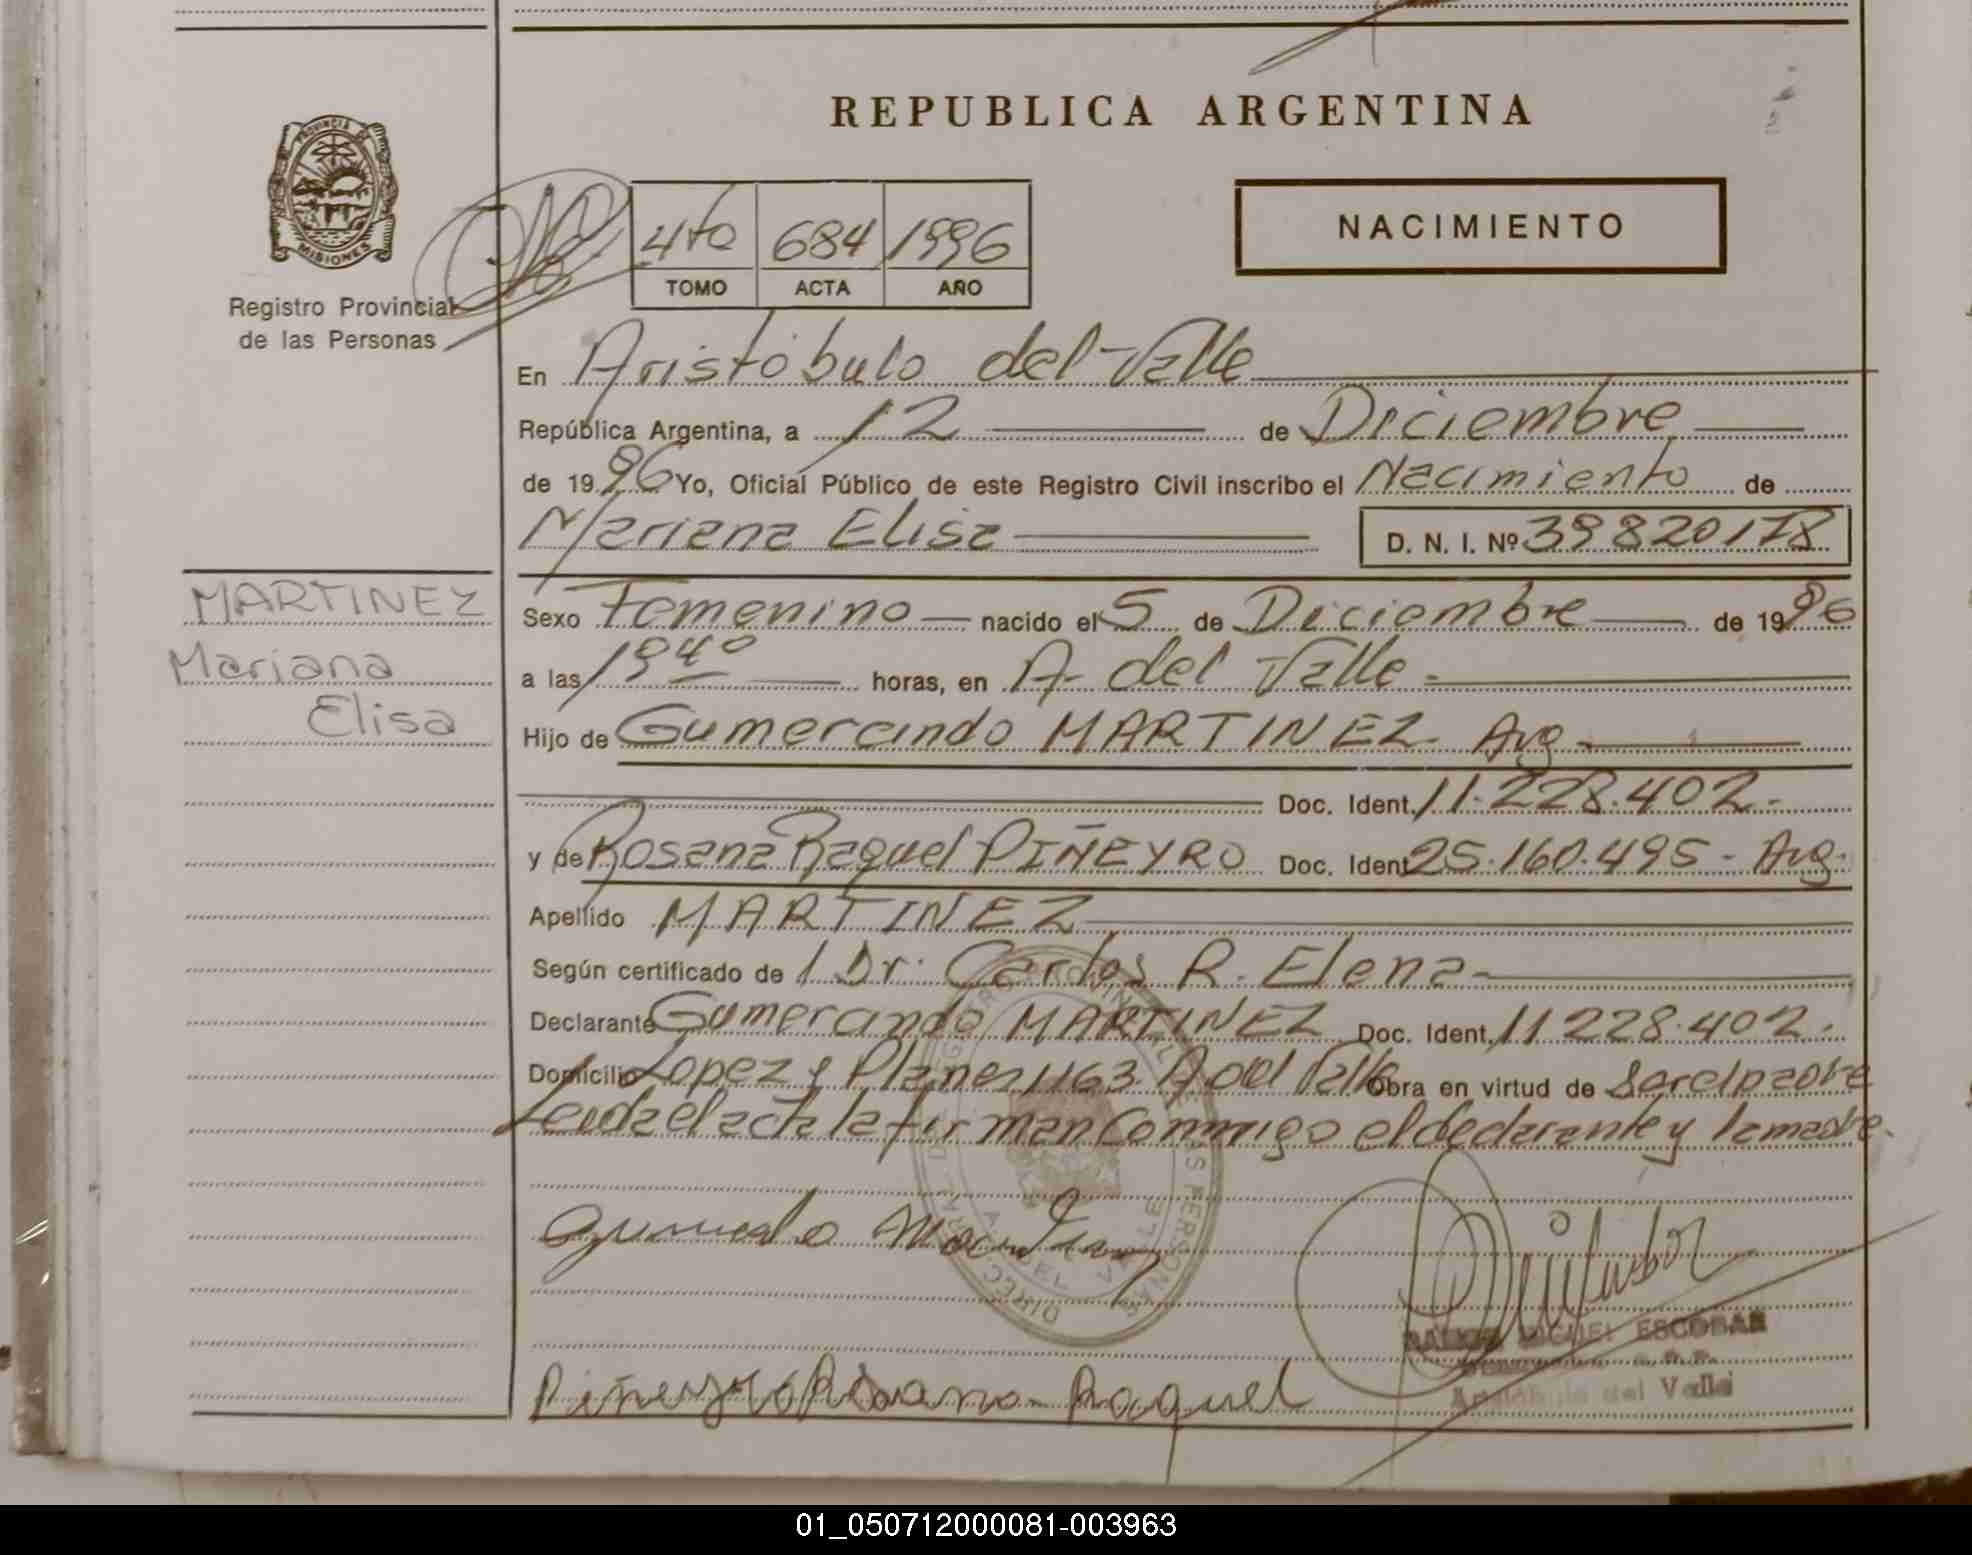 REPUBLICA ARGENTINA
PROVINCIA DE
MISIONES
Registro Provincial
de las Personas
4to 684 1996
TOMO ACTA AÑO
NACIMIENTO
En Aristóbulo del Valle
República Argentina, a 12 de Diciembre
de 1996 Yo, Oficial Público de este Registro Civil inscribo el Nacimiento de
Mariana Elisa D. N. I. Nº 39820178
MARTINEZ
Mariana
Elisa
Sexo Femenino nacido el 5 de Diciembre de 1996
a las 19 40 horas, en A. del Valle
Hijo de Gumercindo MARTINEZ Arg
Doc. Ident. 11.228.402.-
y de Rosana Raquel PIÑEYRO Doc. Ident 25.160.495 - Arg.
Apellido MARTINEZ
Según certificado de Dr. Carlos R. Elena
Declarante Gumercindo MARTINEZ Doc. Ident. 11.228.402.
Domicilio Lopez y Planes 1163 A. del Valle Obra en virtud de Ser el padre
Leida el acta la firman conmigo el declarante y la madre.
Piñeyro Rosana Raquel
MIGUEL ESCOBAR
del Valle
01_050712000081-003963